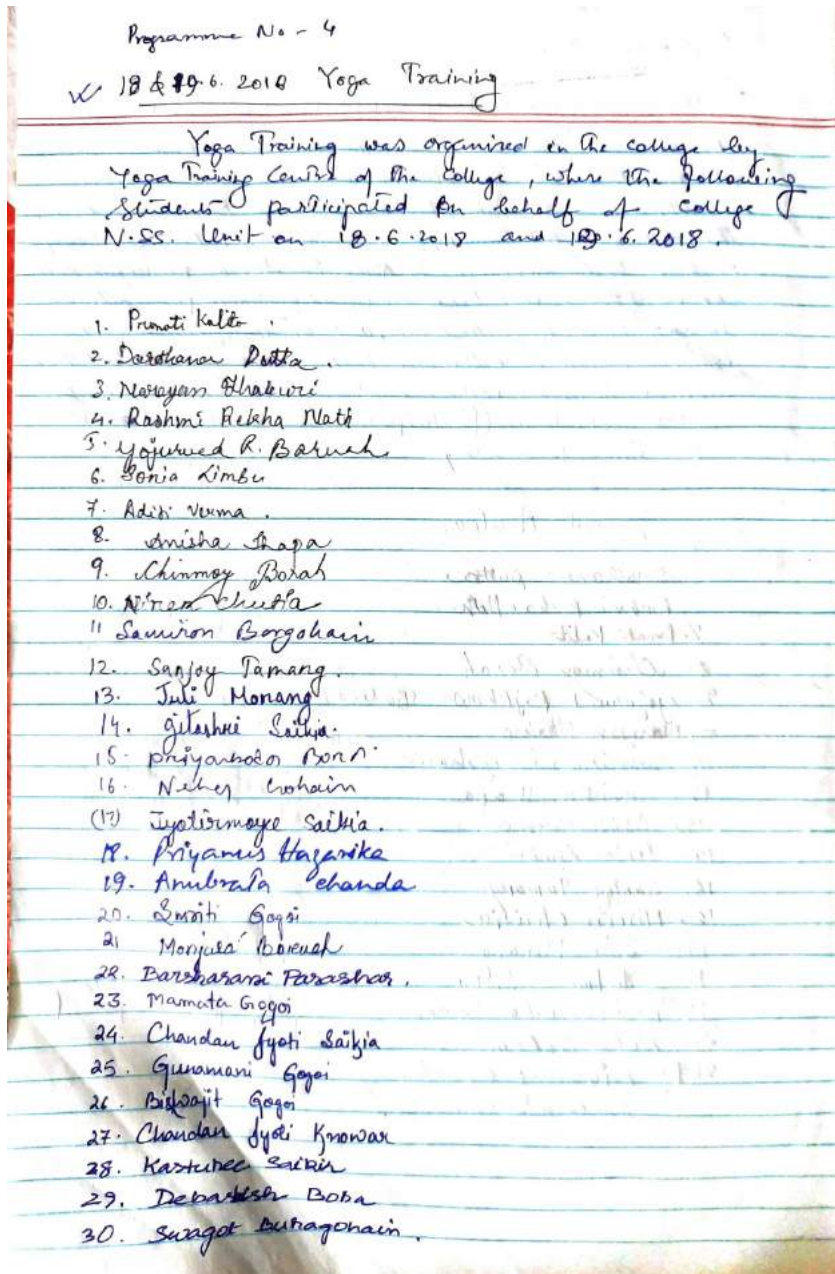 Programme No - 4
18 & 19.6.2018 Yoga Training
Yoga Training was organized in the college by
Yoga Training Centre of the College, where the following
Students participated on behalf of College
N.SS. Unit on 18.6.2018 and 19.6.2018.
1. Pronati Kalita.
2. Darshana Dutta.
3. Narayan Thakuri
4. Rashmi Rekha Nath
5. Yojurved R. Baruah
6. Sonia Limbu
7. Aditi Verma.
8. Anisha Thapa
9. Chinmoy Borah
10. Niren Chutia
11 Samiron Borgohain
12. Sanjoy Tamang.
13. Juli Monang
14. Gitashri Saikia.
15. Priyanka Bora.
16. Neha Gohain
(17) Jyotirmoyee Saikia.
18. Priyanus Hazarika
19. Anubrata Chanda
20. Smriti Gogoi
21 Monjula Baruah
22. Barsharani Parashar.
23. Mamata Gogoi
24. Chandan Jyoti Saikia
25. Gunamani Gogoi
26. Biswajit Gogoi
27. Chandan Jyoti Knowar
28. Kasturee Saikia
29. Debashish Bora
30. Swagot Buragohain.